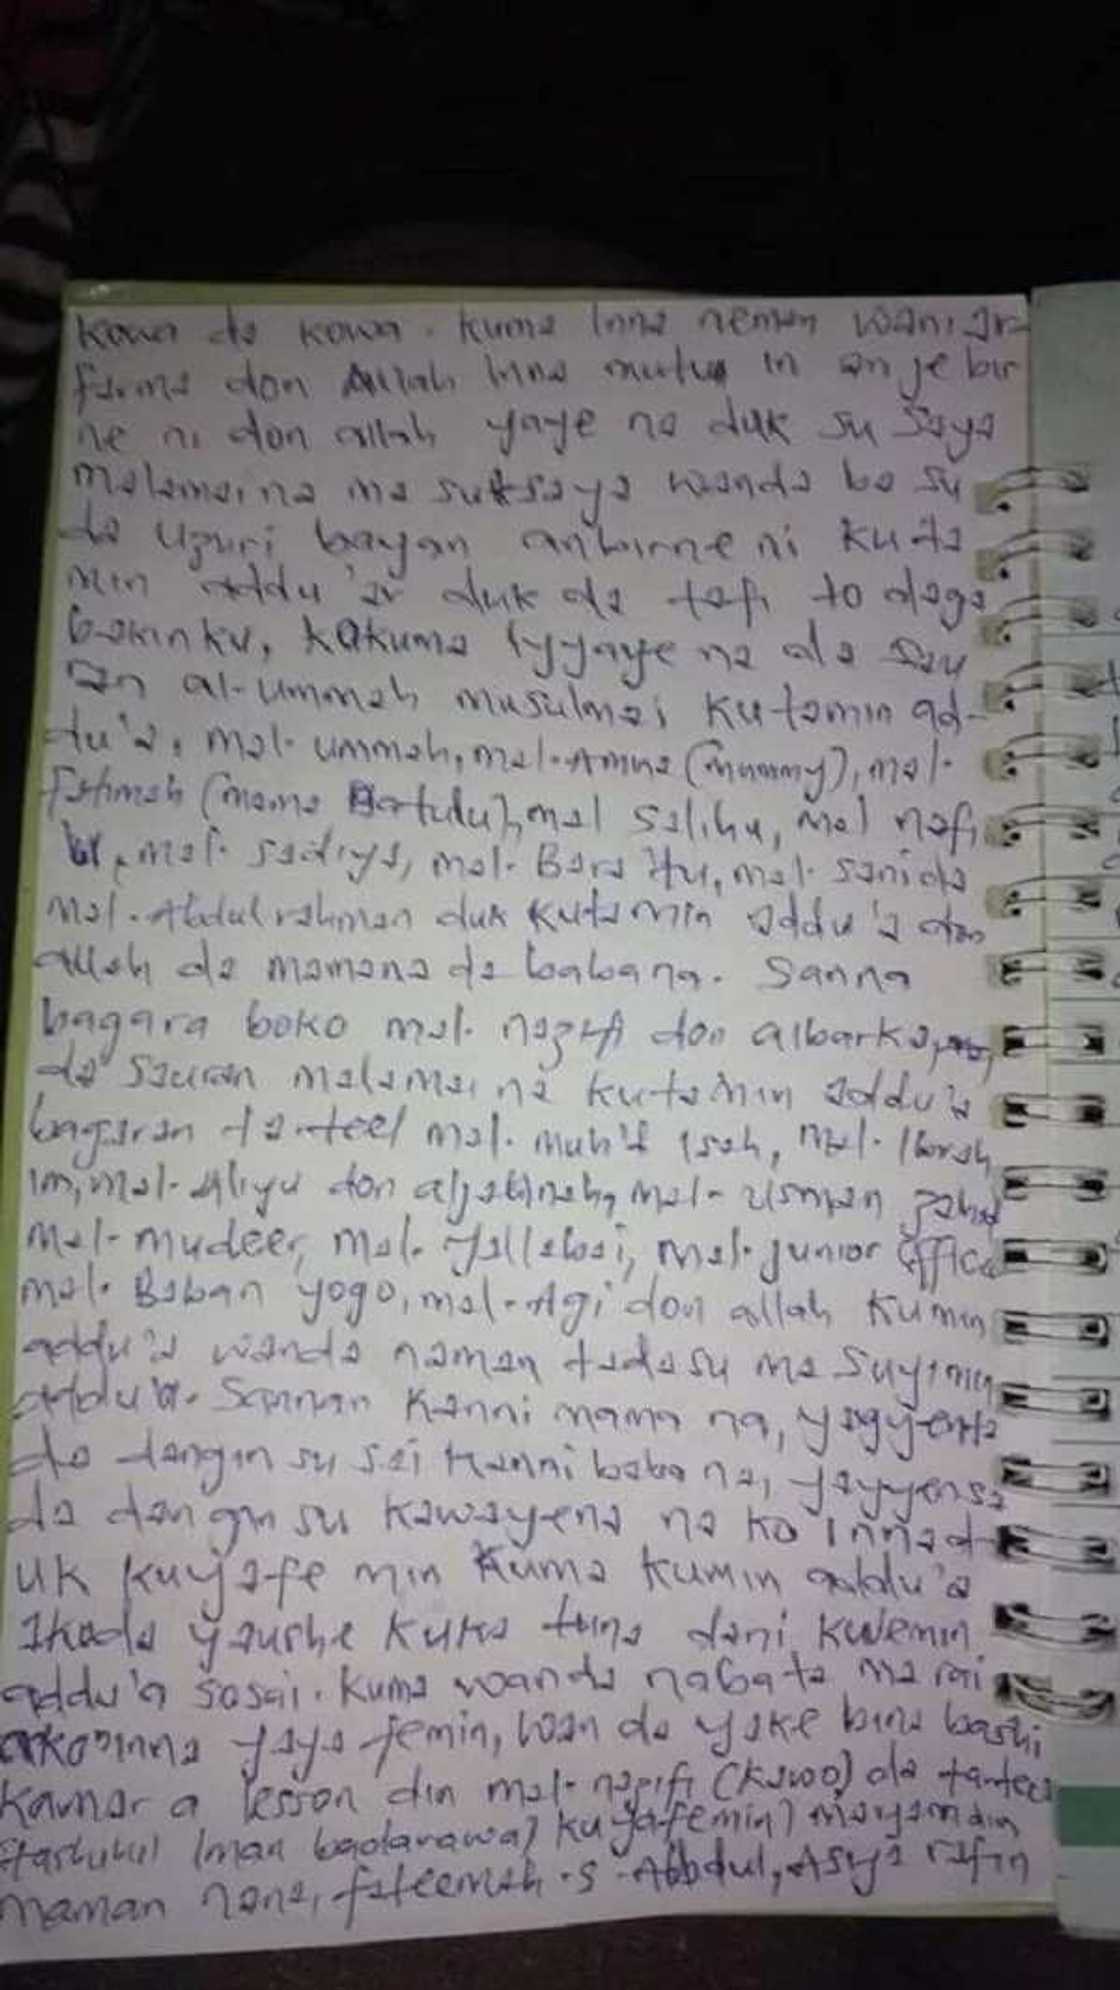 kowa da kowa. kuma Inna neman wani al-
farma don Allah Inna mutu in an je bir
ne ni don allah yaye na duk su saya
malamai na ma suksaya wanda ba su
da uzuri bayan anbirne ni kuta
min addu'ar duk da tafi to daga
bakin ku, kakuma iyyaye na da sau
ran al-ummah musulmai kutamin ad-
du'a, mal. ummah, mal. Amina (mummy), mal.
Fatimah (mama), mal salihu, mal nafi
u, mal. sadiya, mal. Bara'atu, mal. sani da
mal. Abdulrahman duk kuta min addu'a don
allah da mamana da babana. Sanna
bagara boko mal. nazifi don albarka,
da sauran malamai na kutamin addu'a
bagaran tanteel mal. muh'd Isah, mal. Ibrah
im, mal. Aliyu don aljannah, mal. usman
mal. mudeer, mal. Yallabai, mal. junior office
mal. Baban yogo, mal. Agi don allah kumin
addu'a wanda naman tadasu ma suyimin
addu'a. Sannan kanni mama na, yayyenta
da dangin su sai kanni baba na, yayyensa
da dangin su kawayena na ko Innad
uk kuyafe min kuma kumin addu'a
akoda yaushe kuka tuna dani kuyemin
addu'a sosai. kuma wanda nabata ma rai
ako inna yaya femin, wan da yake bina bashi
kamar a lesson din mal. nazifi (kawo) da tanteel
(man badarawa) ku yafemin) maryam din
maman nana, fateemah .s. Abdul, Asya rafin